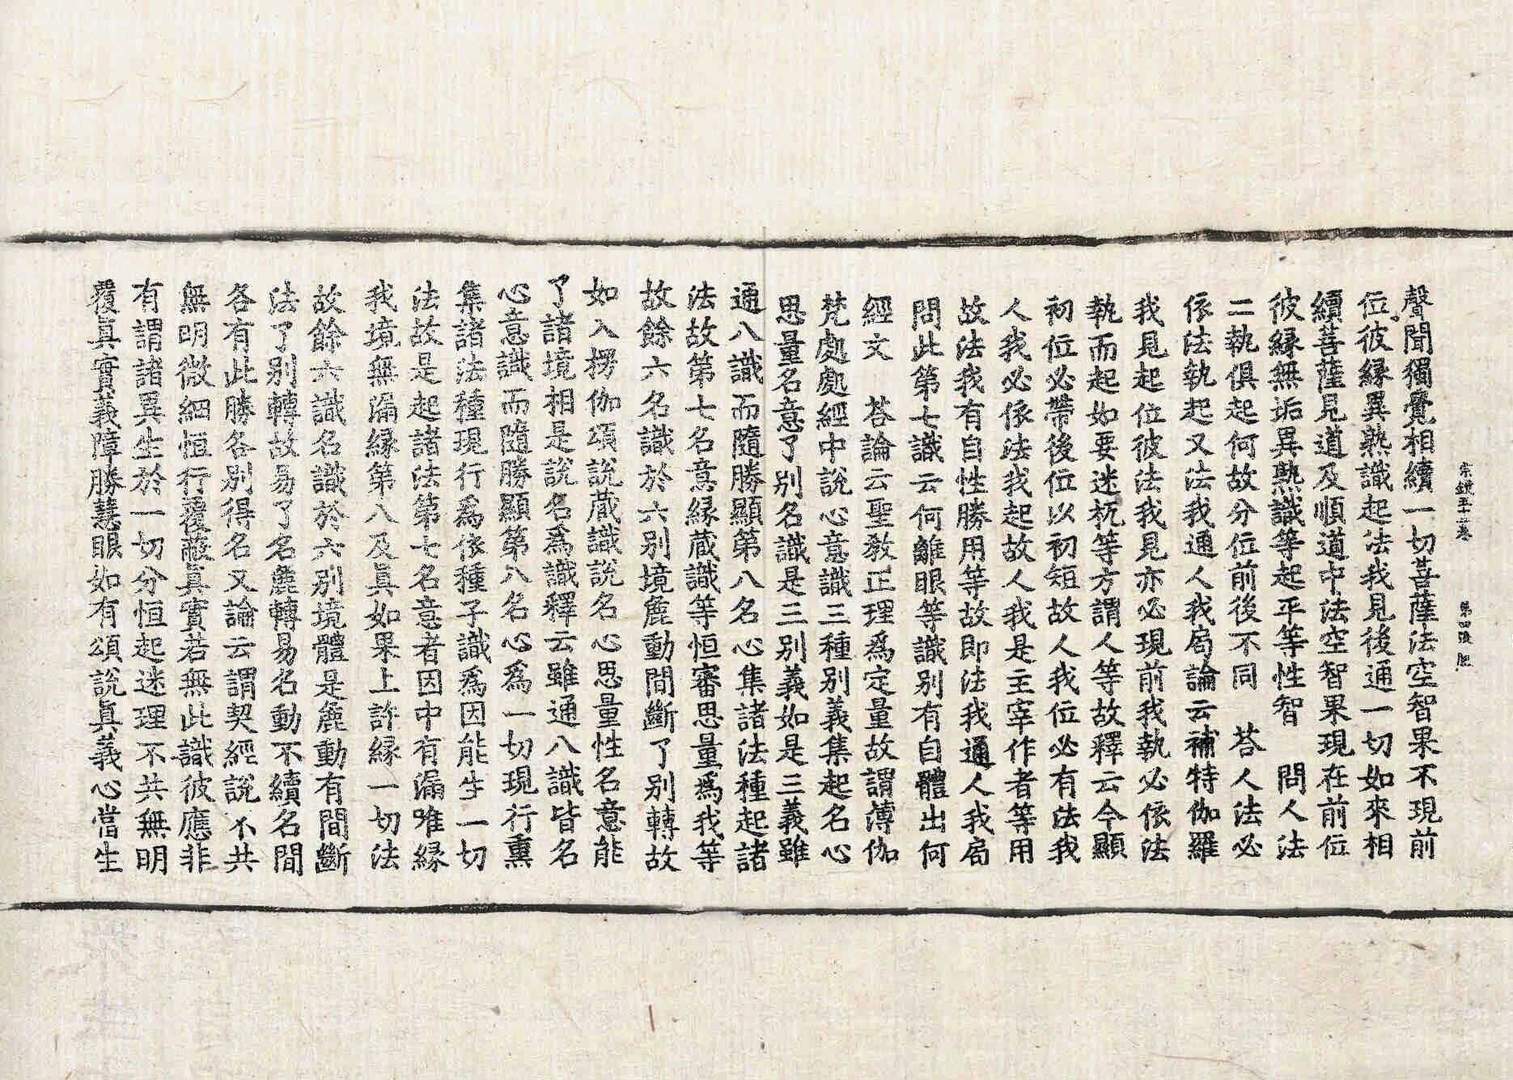 宗鏡五十二卷 第四張 肥
聲聞獨覺相續一切菩薩法空智果不現前
位彼緣異熟識起法我見後通一切如來相
續菩薩見道及順道中法空智果現在前位
彼緣無垢異熟識等起平等性智 問人法
二執俱起何故分位前後不同 荅人法必
依法執起又法我通人我局論云補特伽羅
我見起位彼法我見亦必現前我執必依法
執而起如要迷杌等方謂人等故釋云今顯
初位必帶後位以初短故人我位必有法我
人我必依法我起故人我是主宰作者等用
故法我有自性勝用等故即法我通人我局
問此第七識云何離眼等識別有自體出何
經文 荅論云聖敎正理爲定量故謂薄伽
梵處處經中說心意識三種別義集起名心
思量名意了別名識是三別義如是三義雖
通八識而隨勝顯第八名心集諸法種起諸
法故第七名意緣藏識等恒審思量爲我等
故餘六名識於六別境麁動間斷了別轉故
如入楞伽頌說藏識說名心思量性名意能
了諸境相是說名爲識釋云雖通八識皆名
心意識而隨勝顯第八名心爲一切現行熏
集諸法種現行爲依種子識爲因能生一切
法故是起諸法第七名意者因中有漏唯緣
我境無漏緣第八及眞如果上許緣一切法
故餘六識名識於六別境體是麁動有間斷
法了別轉故易了名麁轉易名動不續名間
各有此勝各別得名又論云謂契經說不共
無明微細恒行覆蔽眞實若無此識彼應非
有謂諸異生於一切分恒起迷理不共無明
覆眞實義障勝慧眼如有頌說眞義心當生